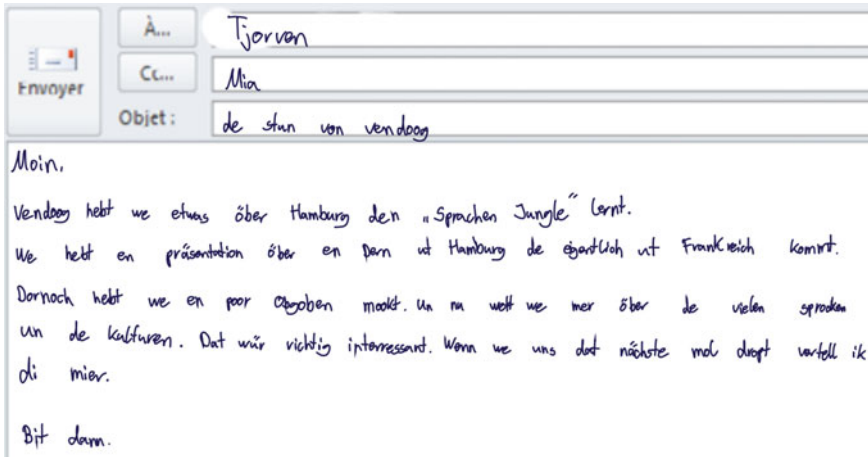 À...
Tjorven
Envoyer
Cc...
Mia
Objet :
de stun von vendoog
Moin,
Vendoog hebt we etwas över Hamburg den „Sprachen Jungle" lernt.
We hebt en präsentation över en Dern ut Hamburg de eigentlich ut Frankreich kommt.
Dornoch hebt we en poor Obgoben mookt. Un nu wett we mer över de vielen sprocken
un de kulturen. Dat wür richtig interressant. Wenn we uns dat nächste mol dropt vertell ik
di mier.
Bit dann.